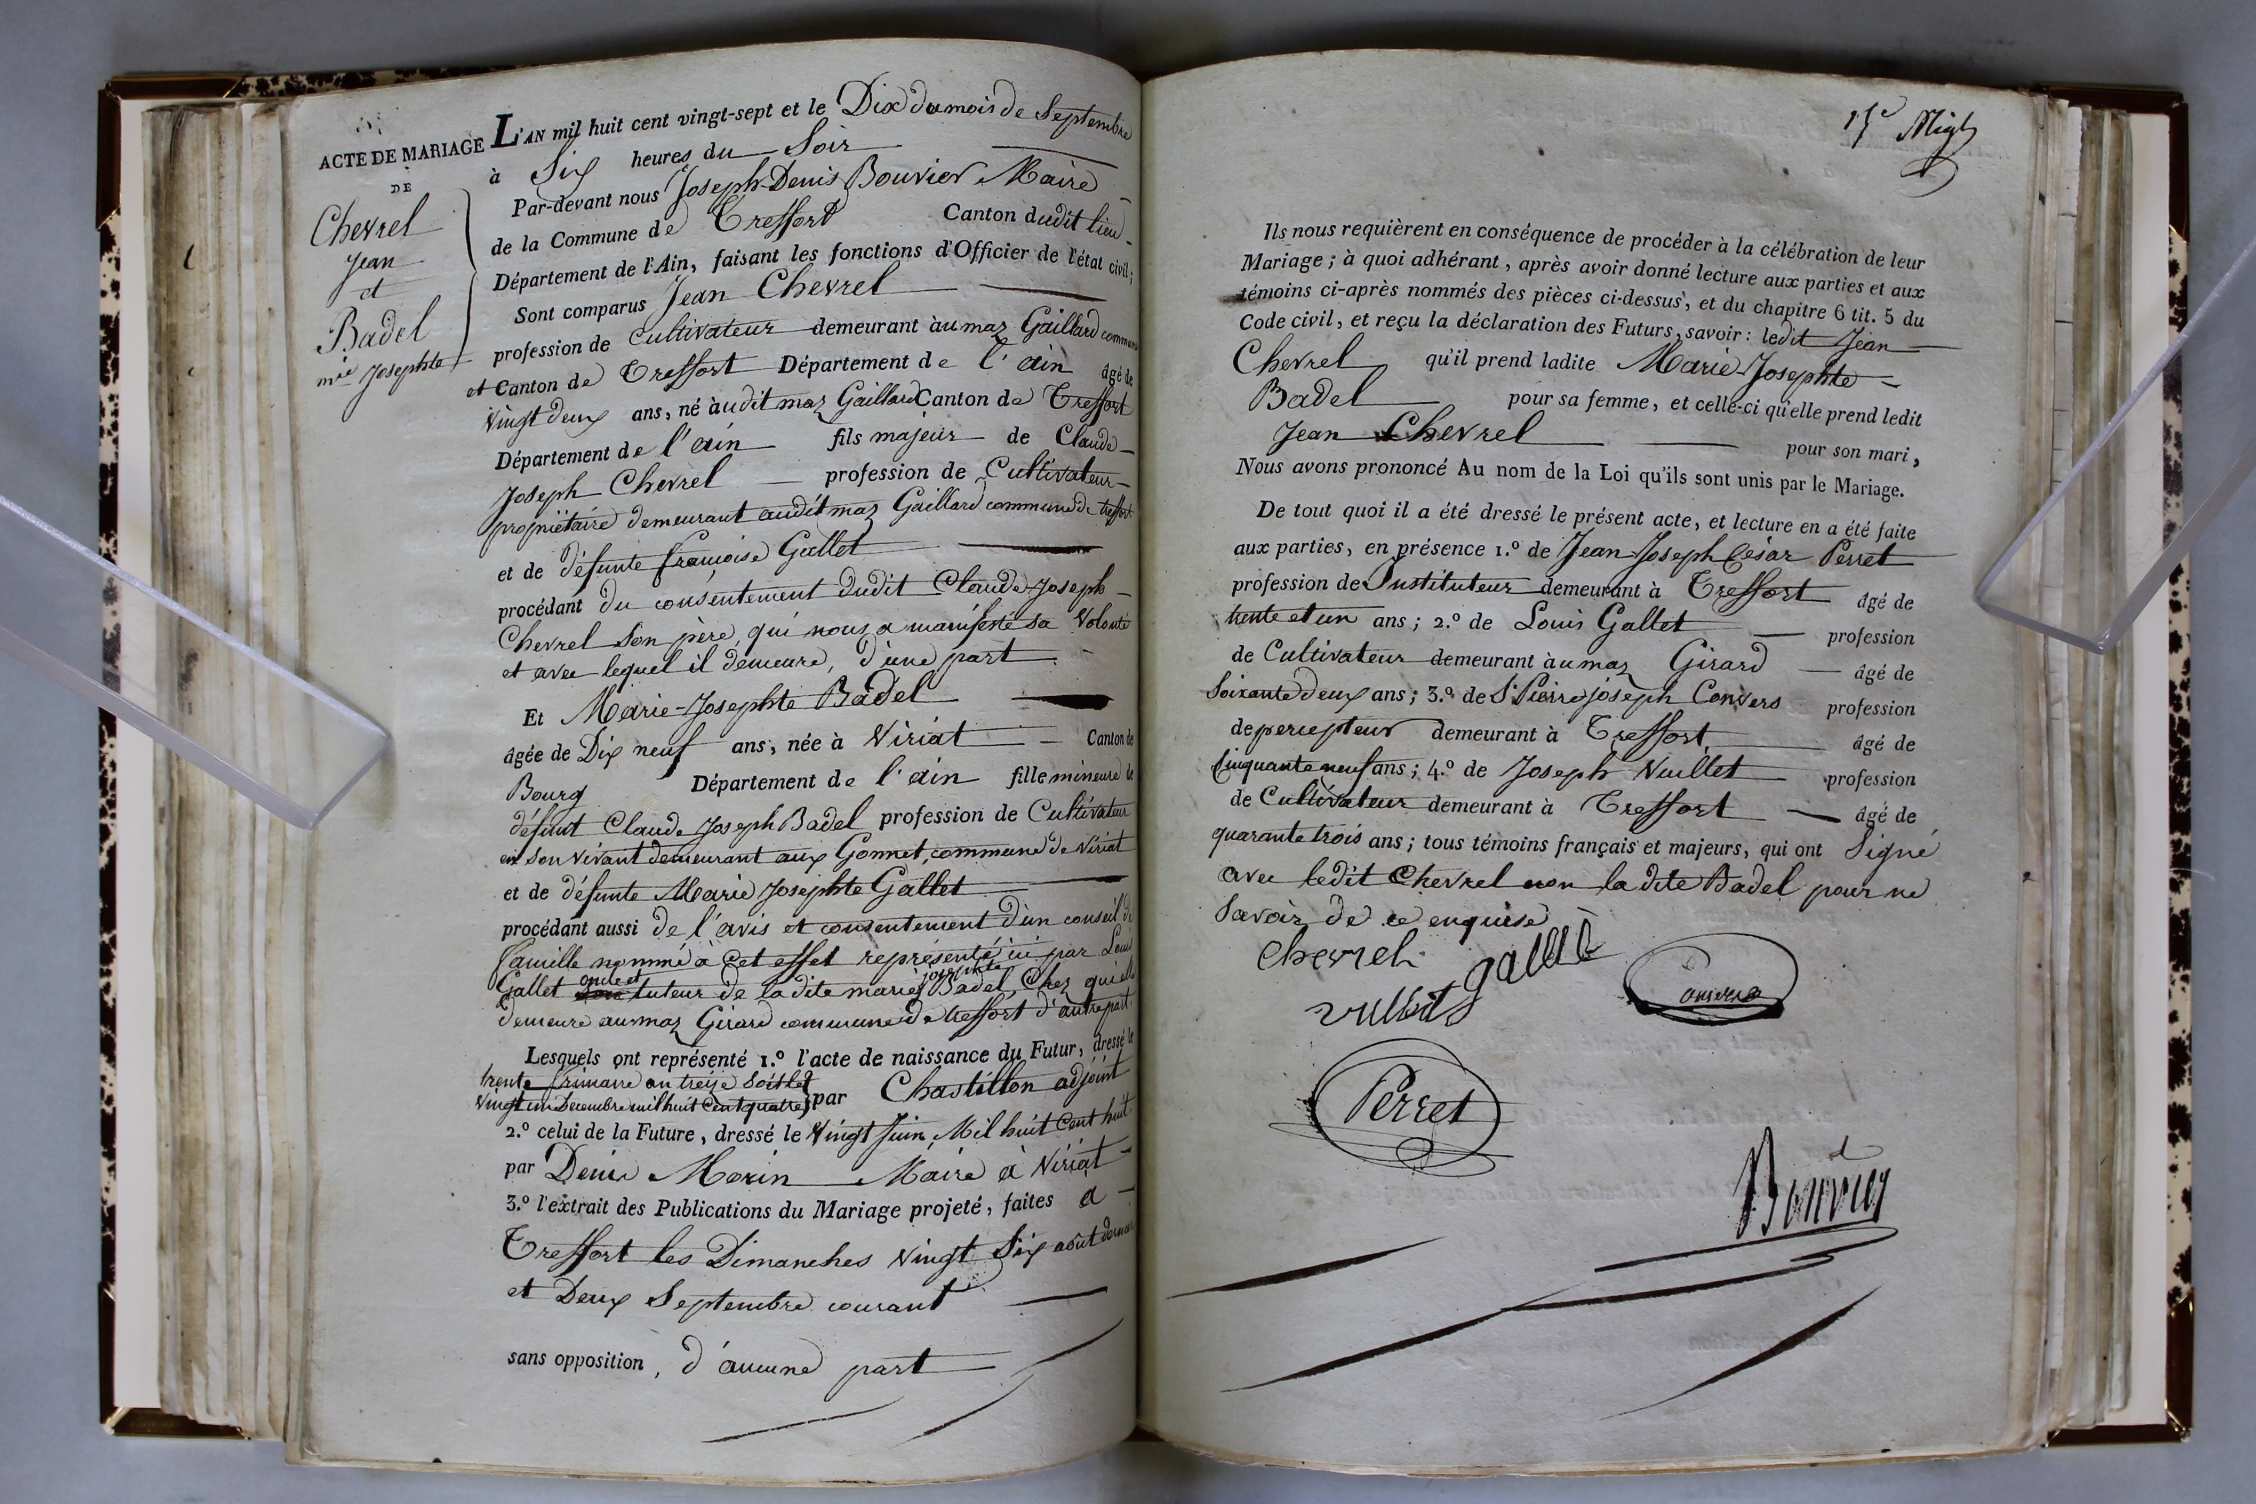 ACTE DE MARIAGE
DE
Chevrel
Jean
et
Badel
mie Josephte
L'AN mil huit cent vingt-sept et le Dix du mois de Septembre
à Six heures du Soir
Par-devant nous Joseph-Denis Bouvier Maire
de la Commune de Treffort Canton dudit lieu
Département de l'Ain, faisant les fonctions d'Officier de l'état civil;
Sont comparus Jean Chevrel
profession de Cultivateur demeurant au maz Gaillard commune
et Canton de Treffort Département de l'ain âgé de
vingt deux ans, né audit maz Gaillard Canton de Treffort
Département de l'ain fils majeur de Claude
Joseph Chevrel profession de Cultivateur
propriétaire demeurant audit maz Gaillard commune de treffort
et de défunte françoise Gallet
procédant du consentement dudit Claude Joseph
Chevrel Son père, qui nous a manifesté sa Volonté
et avec lequel il demeure, d'une part.
Et Marie-Josephte Badel
âgée de Dix neuf ans, née à Viriat Canton de
Bourg Département de l'ain fille mineure de
défunt Claude Joseph Badel profession de Cultivateur
en son vivant demeurant aux Gonnet, commune de Viriat
et de défunte Marie Josephte Gallet
procédant aussi de l'avis et consentement d'un conseil de
famille nommé à cet effet représenté ici par Louis
Gallet oncle et tuteur de la dite marie josephte Badel, Chez qui elle
demeure au maz Girard commune de treffort d'autre part.
Lesquels ont représenté 1.º l'acte de naissance du Futur, dressé le
trente frimaire an treize Soit le
Vingt un Decembre mil huit Cent quatre par Chastillon adjoint
2.º celui de la Future, dressé le Vingt Juin, Mil huit Cent huit
par Denis Morin Maire à Viriat
3.º l'extrait des Publications du Mariage projeté, faites a
Treffort les Dimanches Vingt Six août dernier
et Deux Septembre courant
sans opposition, d'aucune part
15e
Ils nous requièrent en conséquence de procéder à la célébration de leur
Mariage; à quoi adhérant, après avoir donné lecture aux parties et aux
témoins ci-après nommés des pièces ci-dessus, et du chapitre 6 tit. 5 du
Code civil, et reçu la déclaration des Futurs, savoir: ledit Jean
Chevrel qu'il prend ladite Marie Josephte
Badel pour sa femme, et celle-ci qu'elle prend ledit
Jean Chevrel pour son mari,
Nous avons prononcé Au nom de la Loi qu'ils sont unis par le Mariage.
De tout quoi il a été dressé le présent acte, et lecture en a été faite
aux parties, en présence 1.º de Jean Joseph César Perret
profession de Instituteur demeurant à Treffort âgé de
trente et un ans; 2.º de Louis Gallet profession
de Cultivateur demeurant au maz Girard âgé de
Soixante deux ans; 3.º de S. Pierre joseph Convers profession
de percepteur demeurant à Treffort âgé de
Cinquante neuf ans; 4.º de Joseph Vuillet profession
de Cultivateur demeurant à Treffort âgé de
quarante trois ans; tous témoins français et majeurs, qui ont Signé
avec ledit Chevrel non la dite Badel pour ne
Savoir de ce enquise
Chevrel
gallet
vullet
Convers
Perret
Bouvier